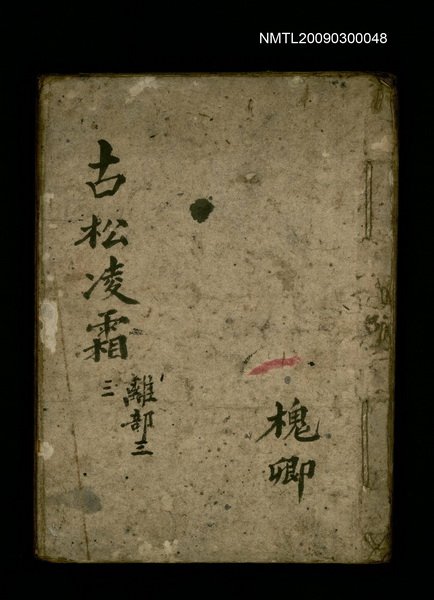 NMTL20090300048
古松凌霜
三
離部三
槐卿